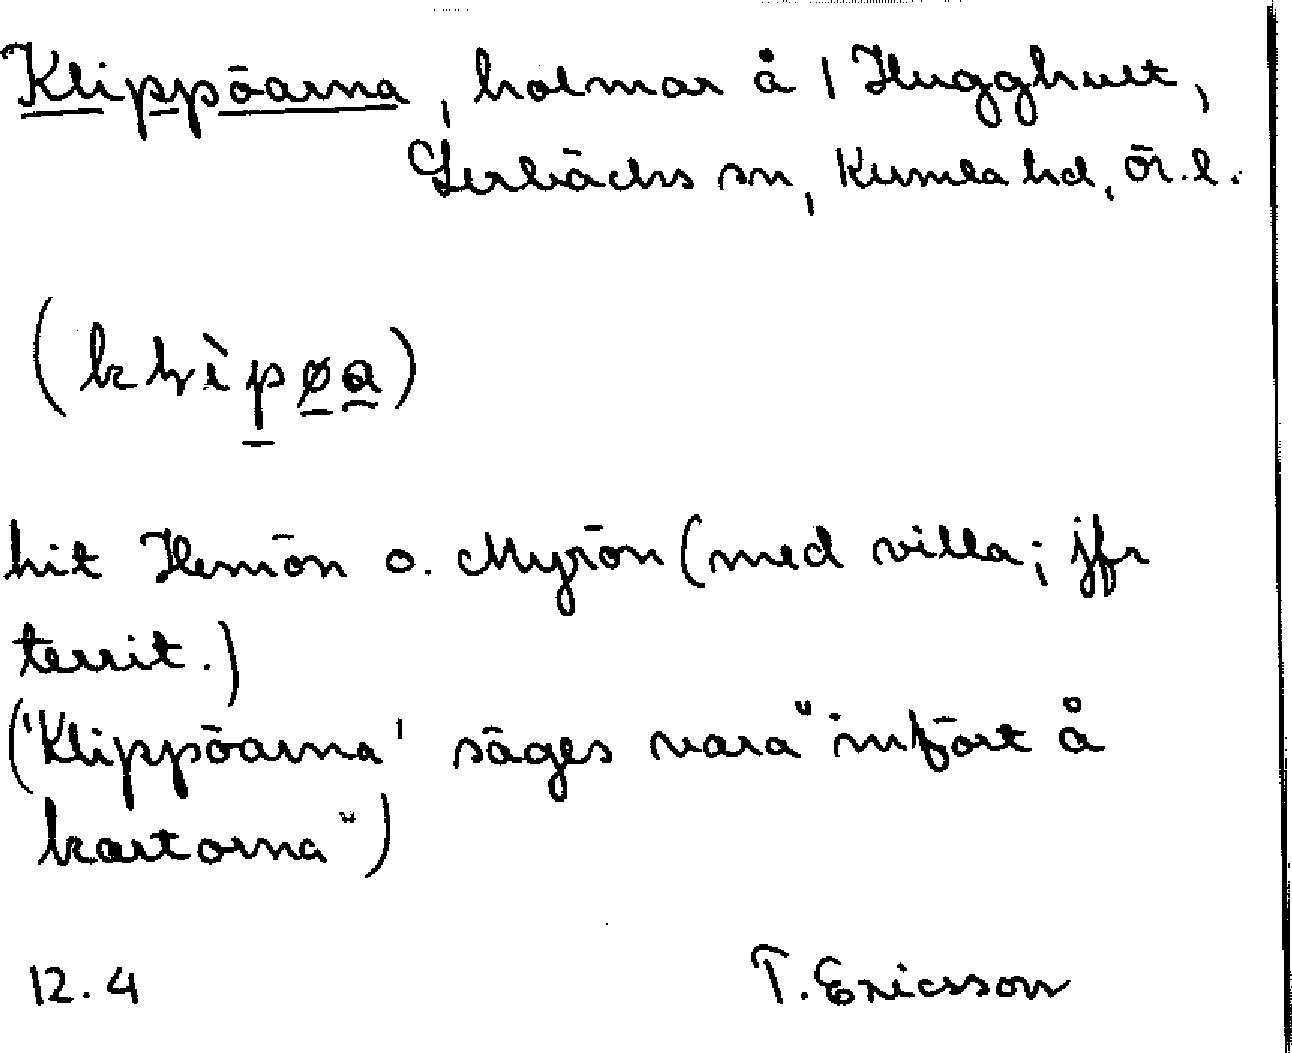 Klippöarna, holmar å 1 Hugghult,
Lerbäcks sn, Kumla hd, Ör.l.
hit Hemön o. Myrön (med villa; jfr
territ.)
('Klippöarna' säges vara "infört å
kartorna")
12.4 T. Ericsson